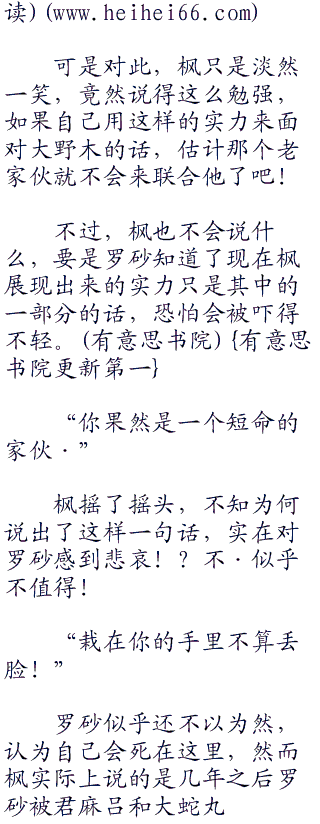 读)(www.heihei66.com)
可是对此，枫只是淡然
一笑，竟然说得这么勉强，
如果自己用这样的实力来面
对大野木的话，估计那个老
家伙就不会来联合他了吧！
不过，枫也不会说什
么，要是罗砂知道了现在枫
展现出来的实力只是其中的
一部分的话，恐怕会被吓得
不轻。(有意思书院){有意思
书院更新第一}
“你果然是一个短命的
家伙·”
枫摇了摇头，不知为何
说出了这样一句话，实在对
罗砂感到悲哀！？不·似乎
不值得！
“栽在你的手里不算丢
脸！”
罗砂似乎还不以为然，
认为自己会死在这里，然而
枫实际上说的是几年之后罗
砂被君麻吕和大蛇丸